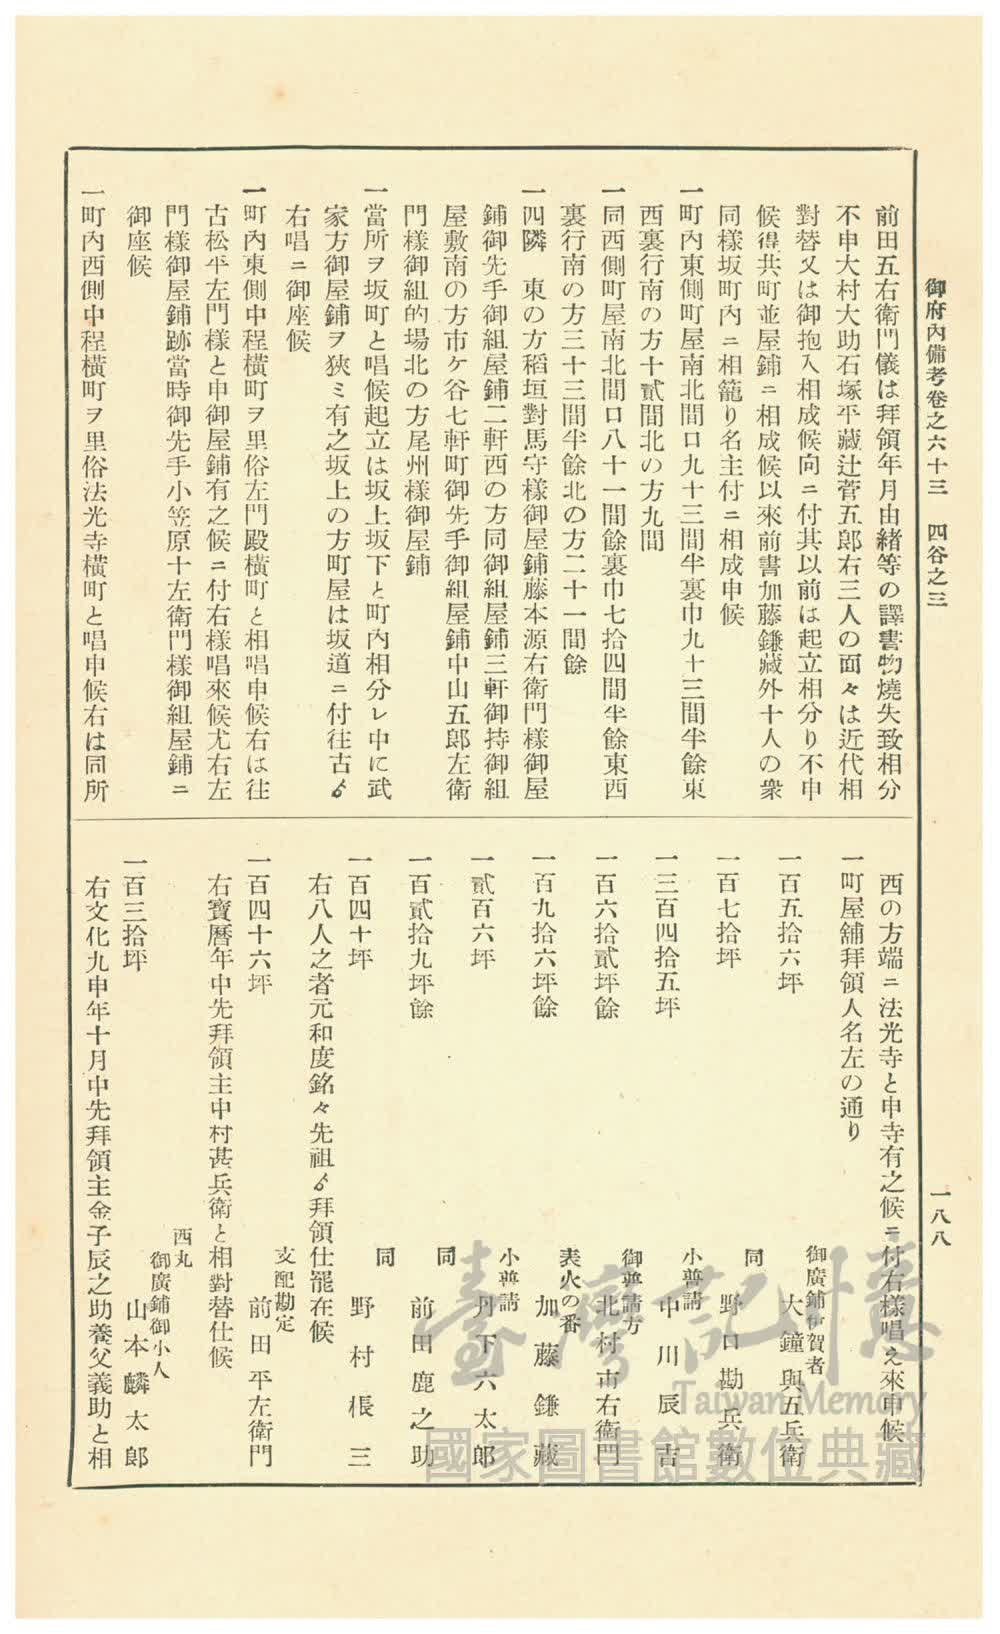 御府內備考卷之六十三　四谷之三
一八八
前田五右衛門儀は拜領年月由緖等の譯書物燒失致相分
不申大村大助石塚平藏辻菅五郞右三人の面々は近代相
對替又は御抱入相成候向ニ付其以前は起立相分り不申
候得共町並屋鋪ニ相成候以來前書加藤鎌藏外十人の衆
同樣坂町內ニ相籠り名主付ニ相成申候
一町內東側町屋南北間口九十三間半裏巾九十三間半餘東
西裏行南の方十貳間北の方九間
一同西側町屋南北間口八十一間餘裏巾七拾四間半餘東西
裏行南の方三十三間半餘北の方二十一間餘
一四隣　東の方稻垣對馬守樣御屋鋪藤本源右衛門樣御屋
鋪御先手御組屋鋪二軒西の方同御組屋鋪三軒御持御組
屋敷南の方市ケ谷七軒町御先手御組屋鋪中山五郞左衛
門樣御組的場北の方尾州樣御屋鋪
一當所ヲ坂町と唱候起立は坂上坂下と町內相分レ中に武
家方御屋鋪ヲ狹ミ有之坂上の方町屋は坂道ニ付往古ゟ
右唱ニ御座候
一町內東側中程橫町ヲ里俗左門殿橫町と相唱申候右は往
古松平左門樣と申御屋鋪有之候ニ付右樣唱來候尤右左
門樣御屋鋪跡當時御先手小笠原十左衛門樣御組屋鋪ニ
御座候
一町內西側中程橫町ヲ里俗法光寺橫町と唱申候右は同所
西の方端ニ法光寺と申寺有之候ニ付右樣唱え來申候
一町屋舖拜領人名左の通り
一百五拾六坪　御廣鋪伊賀者　大鐘與五兵衛
一百七拾坪　同　野口勘兵衛
一三百四拾五坪　小普請　中川辰吉
一百六拾貳坪餘　御普請方　北村市右衛門
一百九拾六坪餘　表火の番　加藤鎌藏
一貳百六坪　小普請　丹下六太郞
一百貳拾九坪餘　同　前田鹿之助
一百四十坪　同　野村棖三
右八人之者元和度銘々先祖ゟ拜領仕罷在候
一百四十六坪　支配勘定　前田平左衛門
右寶曆年中先拜領主中村甚兵衛と相對替仕候
一百三拾坪　西丸御廣鋪御小人　山本麟太郞
右文化九申年十月中先拜領主金子辰之助養父義助と相
臺灣記憶
Taiwan Memory
國家圖書館數位典藏